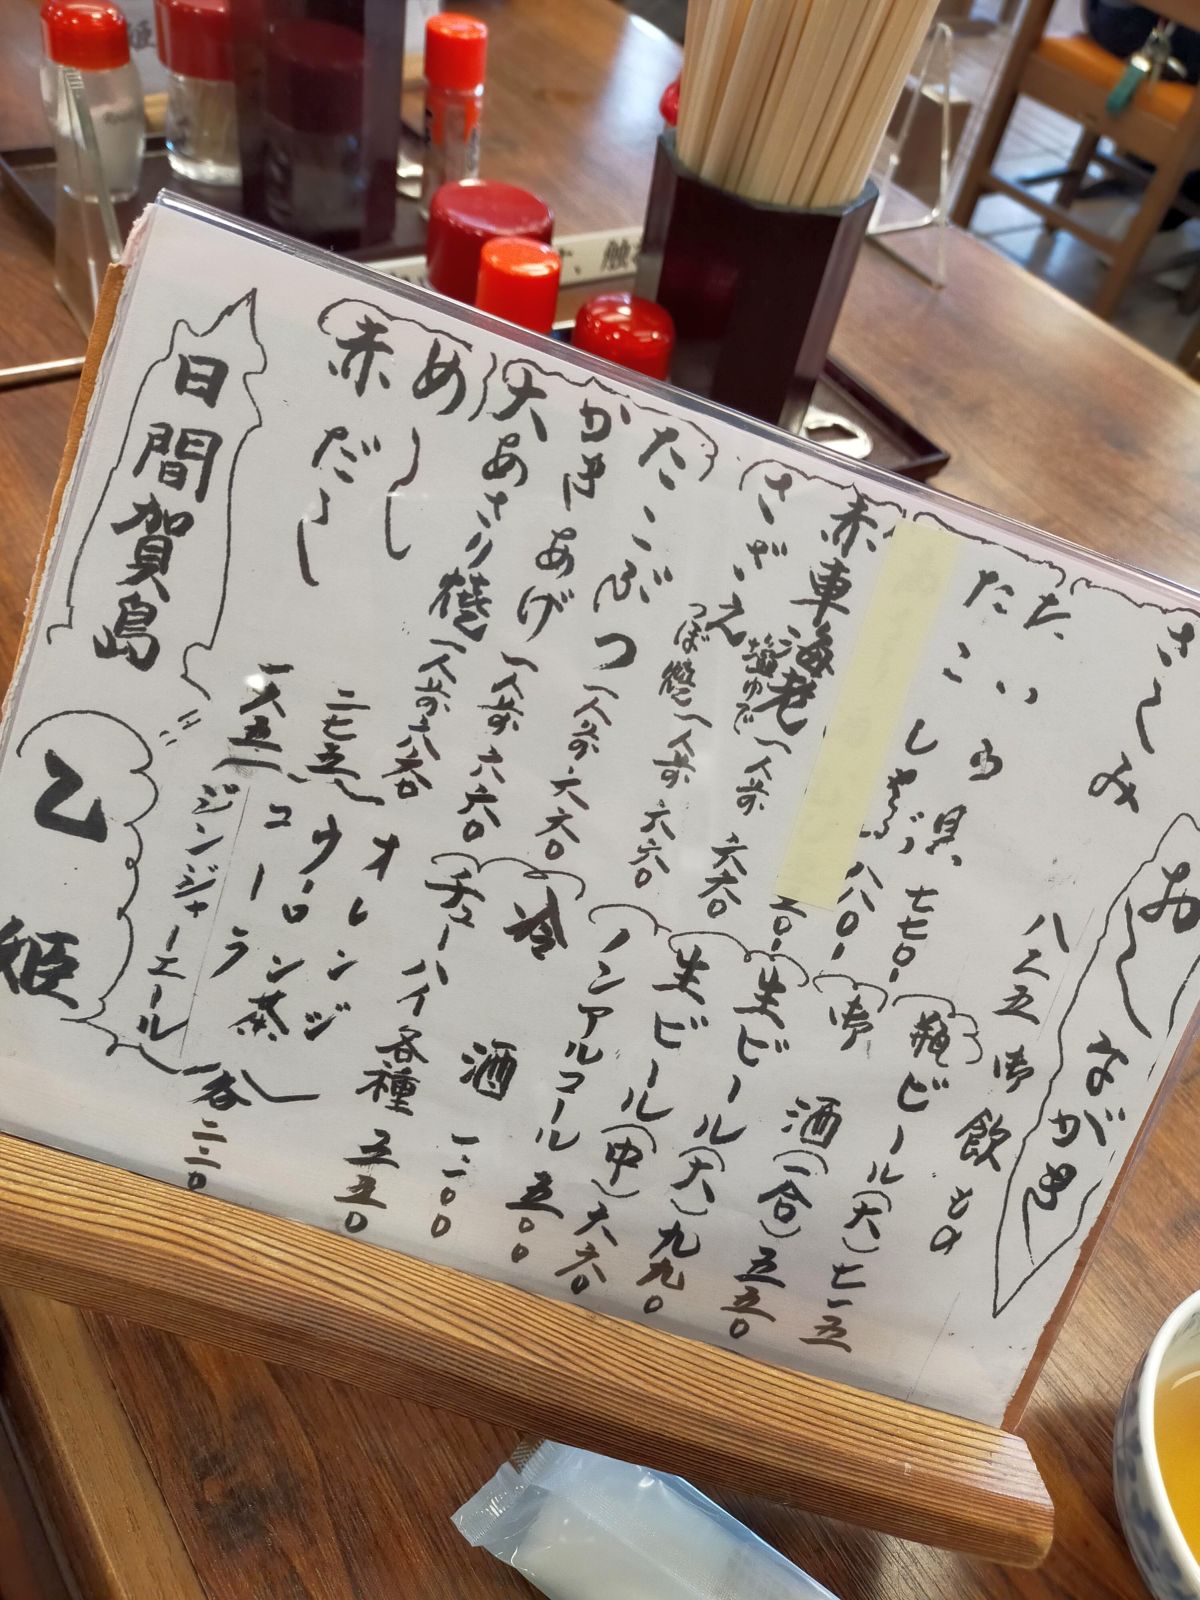 おしながき
さしみ 八二五
たこしゃぶ 八八〇
赤車海老
さざえ 塩ゆで 一人前 六六〇
つぼ焼 一人前 六六〇
たこぶつ 一人前 六六〇
かきあげ 一人前 六六〇
大あさり焼 一人前 六六〇
めし 二七五
赤だし 一六五
御飲もの
瓶ビール(大) 七一五
御酒(一合) 五五〇
生ビール(大) 九九〇
生ビール(中) 六六〇
ノンアルコール 五〇〇
冷酒 一二〇〇
チューハイ各種 五五〇
オレンジ
ウーロン茶
コーラ
ジンジャーエール
各二二〇
日間賀島
乙姫